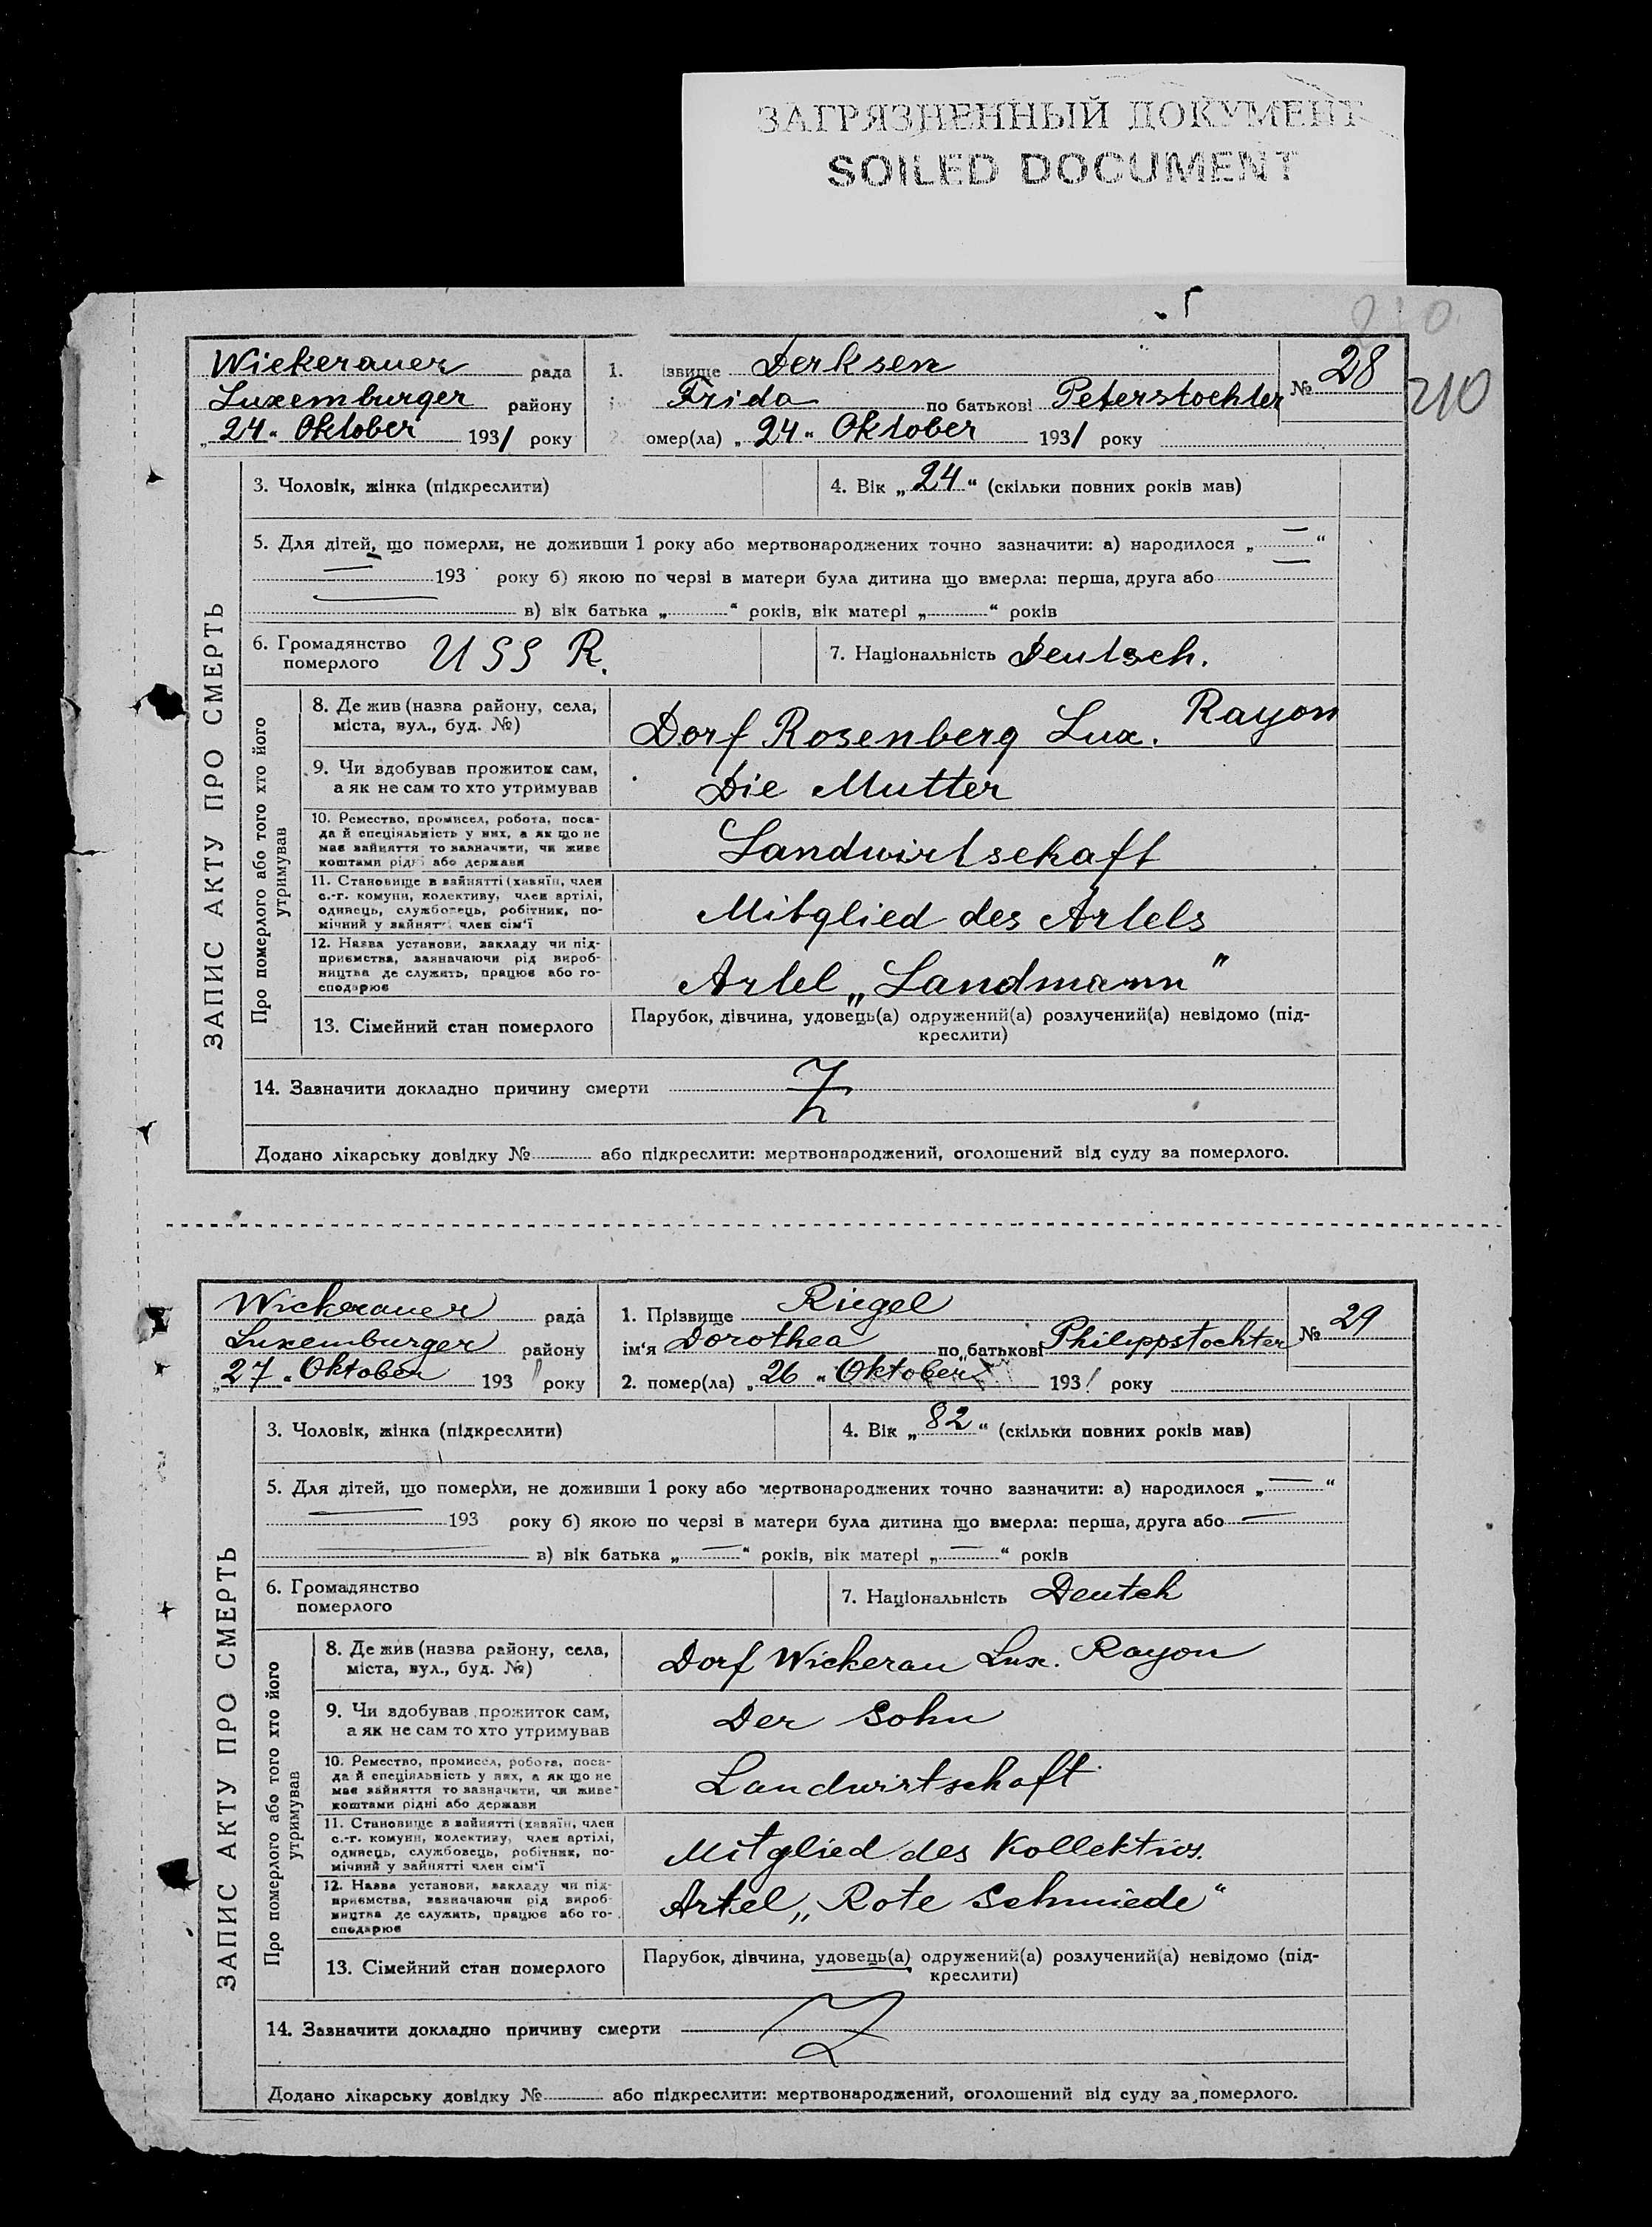 ЗАГРЯЗНЕННЫЙ ДОКУМЕНТ
SOILED DOCUMENT
210
Wickerauer рада
Luxemburger району
„24“ Oktober 1931 року
1. ізвище Derksen
Frida по батькові Peterstochter
2. омер(ла) „24“ Oktober 1931 року
№ 28
210
ЗАПИС АКТУ ПРО СМЕРТЬ
3. Чоловік, жінка (підкреслити)
4. Вік „24“ (скільки повних років мав)
5. Для дітей, що померли, не доживши 1 року або мертвонароджених точно зазначити: а) народилося „—“
— 193 року б) якою по черзі в матери була дитина що вмерла: перша, друга або —
— в) вік батька „ “ років, вік матері „ “ років
6. Громадянство
померлого
USSR.
7. Національність Deutsch.
Про померлого або того хто його
утримував
8. Де жив (назва району, села,
міста, вул., буд. №)
Dorf Rosenberg Lux. Rayon
9. Чи здобував прожиток сам,
а як не сам то хто утримував
Die Mutter
10. Ремество, промисел, робота, поса-
да й спеціяльність у них, а як що не
має зайняття то зазначити, чи живе
коштами рідні або держави
Landwirtschaft
11. Становище в зайнятті (хазяїн, член
с.-г. комуни, колективу, член артілі,
одинець, службовець, робітник, по-
мічний у зайнятті член сім'ї
Mitglied des Artels
12. Назва установи, закладу чи під-
приємства, зазначаючи рід вироб-
ництва де служить, працює або го-
сподарює
Artel „Landmann“
13. Сімейний стан померлого
Парубок, дівчина, удовець(а) одружений(а) розлучений(а) невідомо (під-
креслити)
14. Зазначити докладно причину смерти
Додано лікарську довідку № або підкреслити: мертвонароджений, оголошений від суду за померлого.
Wickerauer рада
Luxemburger району
„27“ Oktober 193 року
1. Прізвище Riegel
ім'я Dorothea по батькові Philippstochter
2. помер(ла) „26“ Oktober 1931 року
№ 29
ЗАПИС АКТУ ПРО СМЕРТЬ
3. Чоловік, жінка (підкреслити)
4. Вік „82“ (скільки повних років мав)
5. Для дітей, що померли, не доживши 1 року або мертвонароджених точно зазначити: а) народилося „—“
— 193 року б) якою по черзі в матери була дитина що вмерла: перша, друга або —
— в) вік батька „—“ років, вік матері „—“ років
6. Громадянство
померлого
7. Національність Deutch
Про померлого або того хто його
утримував
8. Де жив (назва району, села,
міста, вул., буд. №)
Dorf Wickerau Lux. Rayon
9. Чи здобував прожиток сам,
а як не сам то хто утримував
Der Sohn
10. Ремество, промисел, робота, поса-
да й спеціяльність у них, а як що не
має зайняття то зазначити, чи живе
коштами рідні або держави
Landwirtschaft
11. Становище в зайнятті (хазяїн, член
с.-г. комуни, колективу, член артілі,
одинець, службовець, робітник, по-
мічний у зайнятті член сім'ї
Mitglied des Kollektivs.
12. Назва установи, закладу чи під-
приємства, зазначаючи рід вироб-
ництва де служить, працює або го-
сподарює
Artel „Rote Schmiede“
13. Сімейний стан померлого
Парубок, дівчина, удовець(а) одружений(а) розлучений(а) невідомо (під-
креслити)
14. Зазначити докладно причину смерти
Додано лікарську довідку № або підкреслити: мертвонароджений, оголошений від суду за померлого.